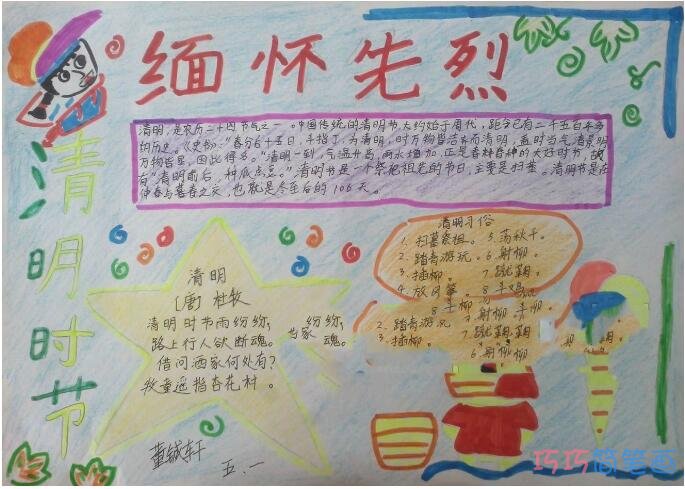 缅怀先烈
清明时节
清明,是农历二十四节气之一。中国传统的清明节大约始于周代,距今已有二千五百年多
的历史。《史书》:"春分后十五日,斗指丁,为清明,时万物皆洁齐而清明,盖时当气清景明
万物皆显,因此得名。"清明一到,气温升高,雨水增加,正是春耕春种的大好时节,故
有"清明前后,种瓜点豆。"清明节是一个祭祀祖先的节日,主要是扫墓。清明节是在
仲春与暮春之交,也就是冬至后的106天。
清明
[唐] 杜牧
清明时节雨纷纷,
路上行人欲断魂。
借问酒家何处有?
牧童遥指杏花村。
纷纷,
魂。
清明习俗
1. 扫墓祭祖。 5. 荡秋千。
2. 踏青游玩。 6. 射柳。
3. 插柳。 7. 蹴鞠。
4. 放风筝。 8. 斗鸡
2. 踏青游玩 7. 蹴鞠
3. 插柳。
6 射柳
五.一
巧巧简笔画